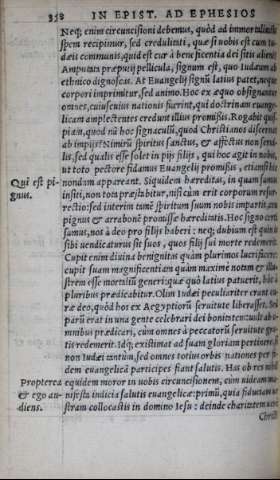 358 IN EPIST. AD EPHESIOS
Neq; enim circuncisioni debemus, quòd ad immortalitatis
spem recipimur, sed credulitati, quæ si uobis est cum Iu-
dæis communis, quid est cur à beneficentia dei sitis alieni?
Amputati præputij pellicula, signum est, quo Iudæum ab
ethnico dignoscas. At Euangelij signū latius patet, neque
corpori imprimitur, sed animo. Hoc ex æquo obsignantur
omnes, cuiuscuius nationis fuerint, qui doctrinam euange-
licam amplectentes credunt illius promissis. Rogabit quis-
piam, quod nā hoc signaculū, quod Christianos discernit
ab impijs? Nimirū spiritus sanctus, & affectus non serui-
lis, sed qualis esse solet in pijs filijs, qui hoc agit in nobis,
ut toto pectore fidamus Euangelij promissis, etiamsi hic
Qui est pi- nondum appareant. Siquidem hæreditas, in quam sumus
gnus. insiti, non tota præstabitur, nisi cùm erit corporum resur-
rectio: sed interim tamē spiritum suum nobis impartit, ceu
pignus & arrabonē promissæ hæreditatis. Hoc signo certi
sumus, nos à deo pro filijs haberi: neq; dubium est quin is
sibi uendicaturus sit suos, quos filij sui morte redemerit.
Cupit enim diuina benignitas quàm plurimos lucrifacere:
cupit suam magnificentiam quàm maximè notam & illu-
strem esse mortaliū generi: quæ quò latius patuerit, hoc à
pluribus prædicabitur. Olim Iudæi peculiariter erant cu-
ræ deo, quòd hos ex Aegyptiorū seruitute liberasset. Sed
parū erat in una gente celebrari dei bonitatem: uult ab o-
mnibus prædicari, cùm omnes à peccatorū seruitute gra-
tis redemerit. Idq; existimat ad suam gloriam pertinere, si
non Iudæi tantùm, sed omnes totius orbis nationes per fi-
dem euangelicā participes fiant salutis. Has ob res nihil
Propterea equidem moror in uobis circuncisionem, cùm uideam ma-
& ego au- nifesta indicia salutis euangelicæ: primū, quia fiduciam ue-
diens. stram collocastis in domino Iesu: deinde charitatem uerè
Christi